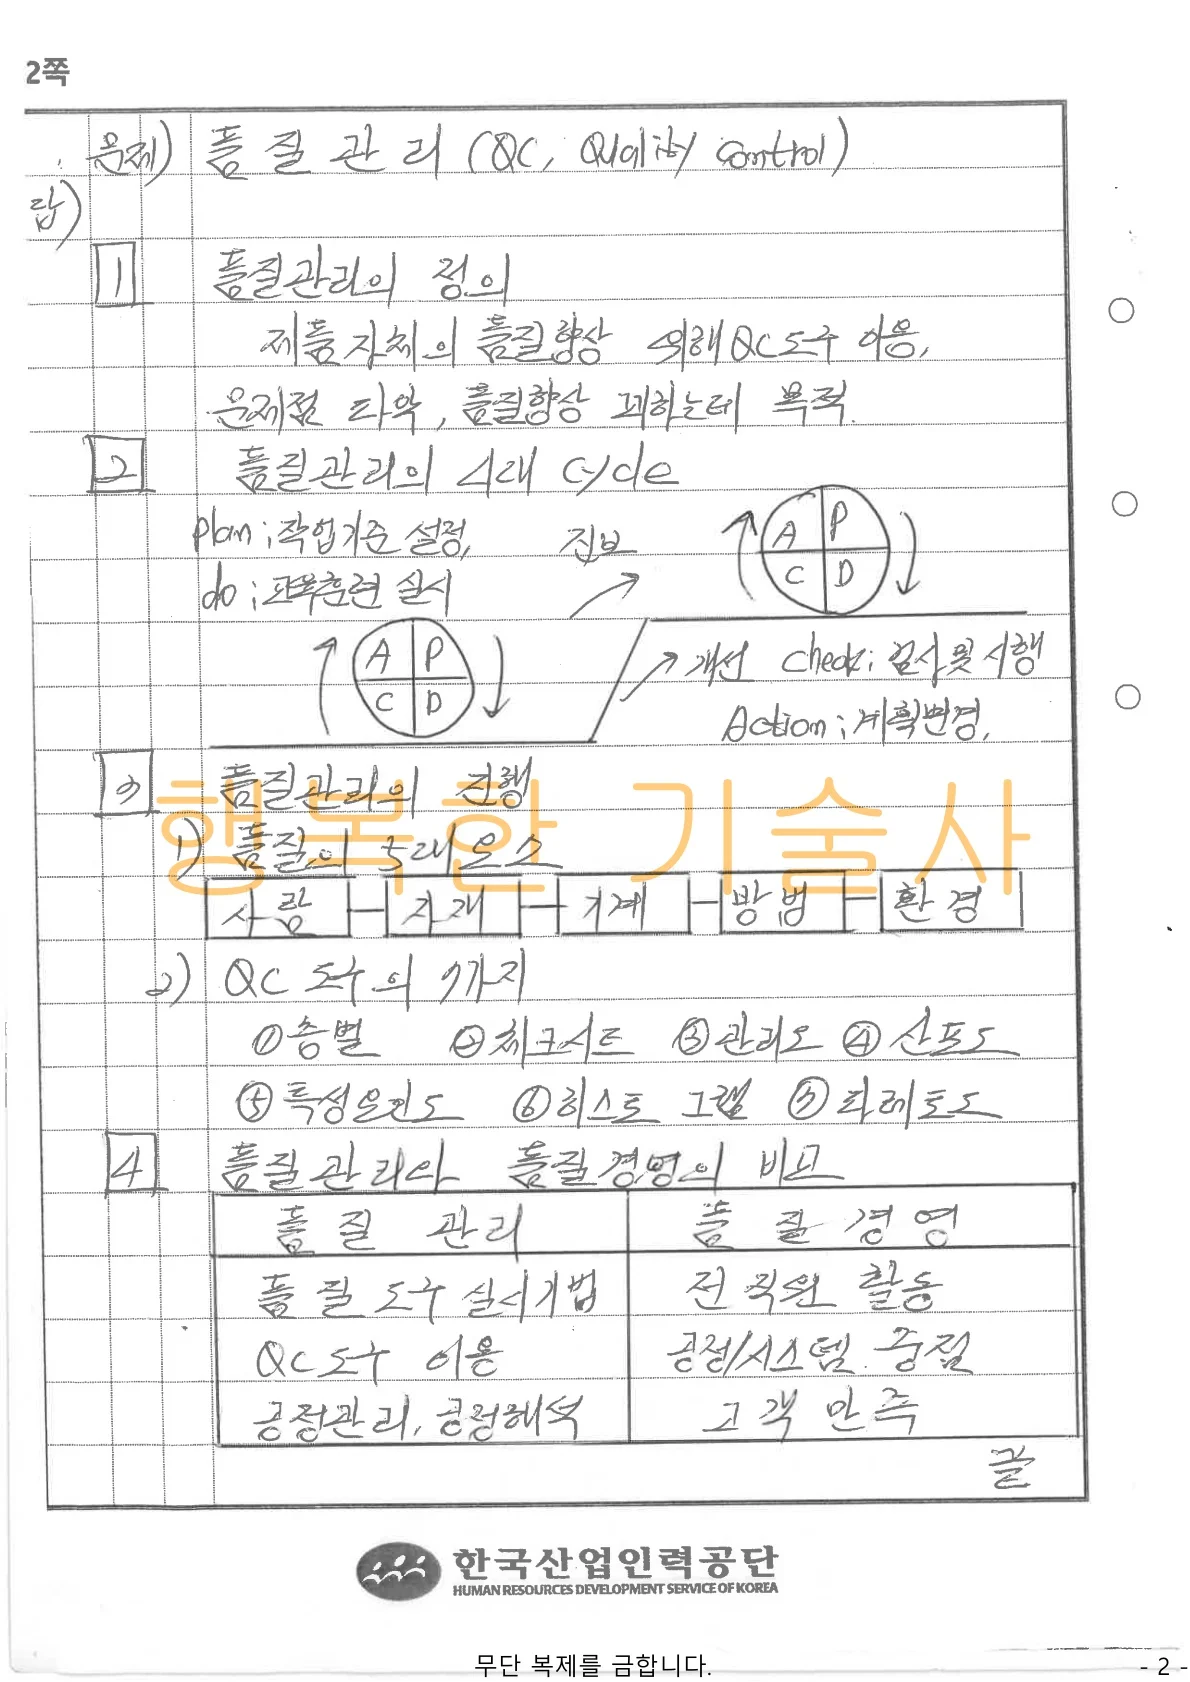 2쪽
문제) 품질관리 (QC, Quality control)
답)
1 품질관리의 정의
제품 자체의 품질향상 위해 QC도구 이용,
문제점 파악, 품질향상 꾀하는데 목적.
2 품질관리의 4대 Cycle
Plan ; 작업기준 설정, 진보 A P C D
do ; 교육훈련 실시
A P C D 개선 Check ; 검사 및 시행
Action ; 계획변경,
3 품질관리의 진행
행복한 기술사
1) 품질의 5대요소
사람 자재 기계 방법 환경
2) QC 도구의 7가지
① 층별 ② 체크시트 ③ 관리도 ④ 산포도
⑤ 특성요인도 ⑥ 히스토그램 ⑦ 파레토도
4 품질관리와 품질경영의 비교
품질관리 품질경영
품질도구 실시기법 전직원 활동
QC도구 이용 공정/시스템 중점
공정관리, 공정해석 고객만족
끝
한국산업인력공단
HUMAN RESOURCES DEVELOPMENT SERVICE OF KOREA
무단 복제를 금합니다.
- 2 -